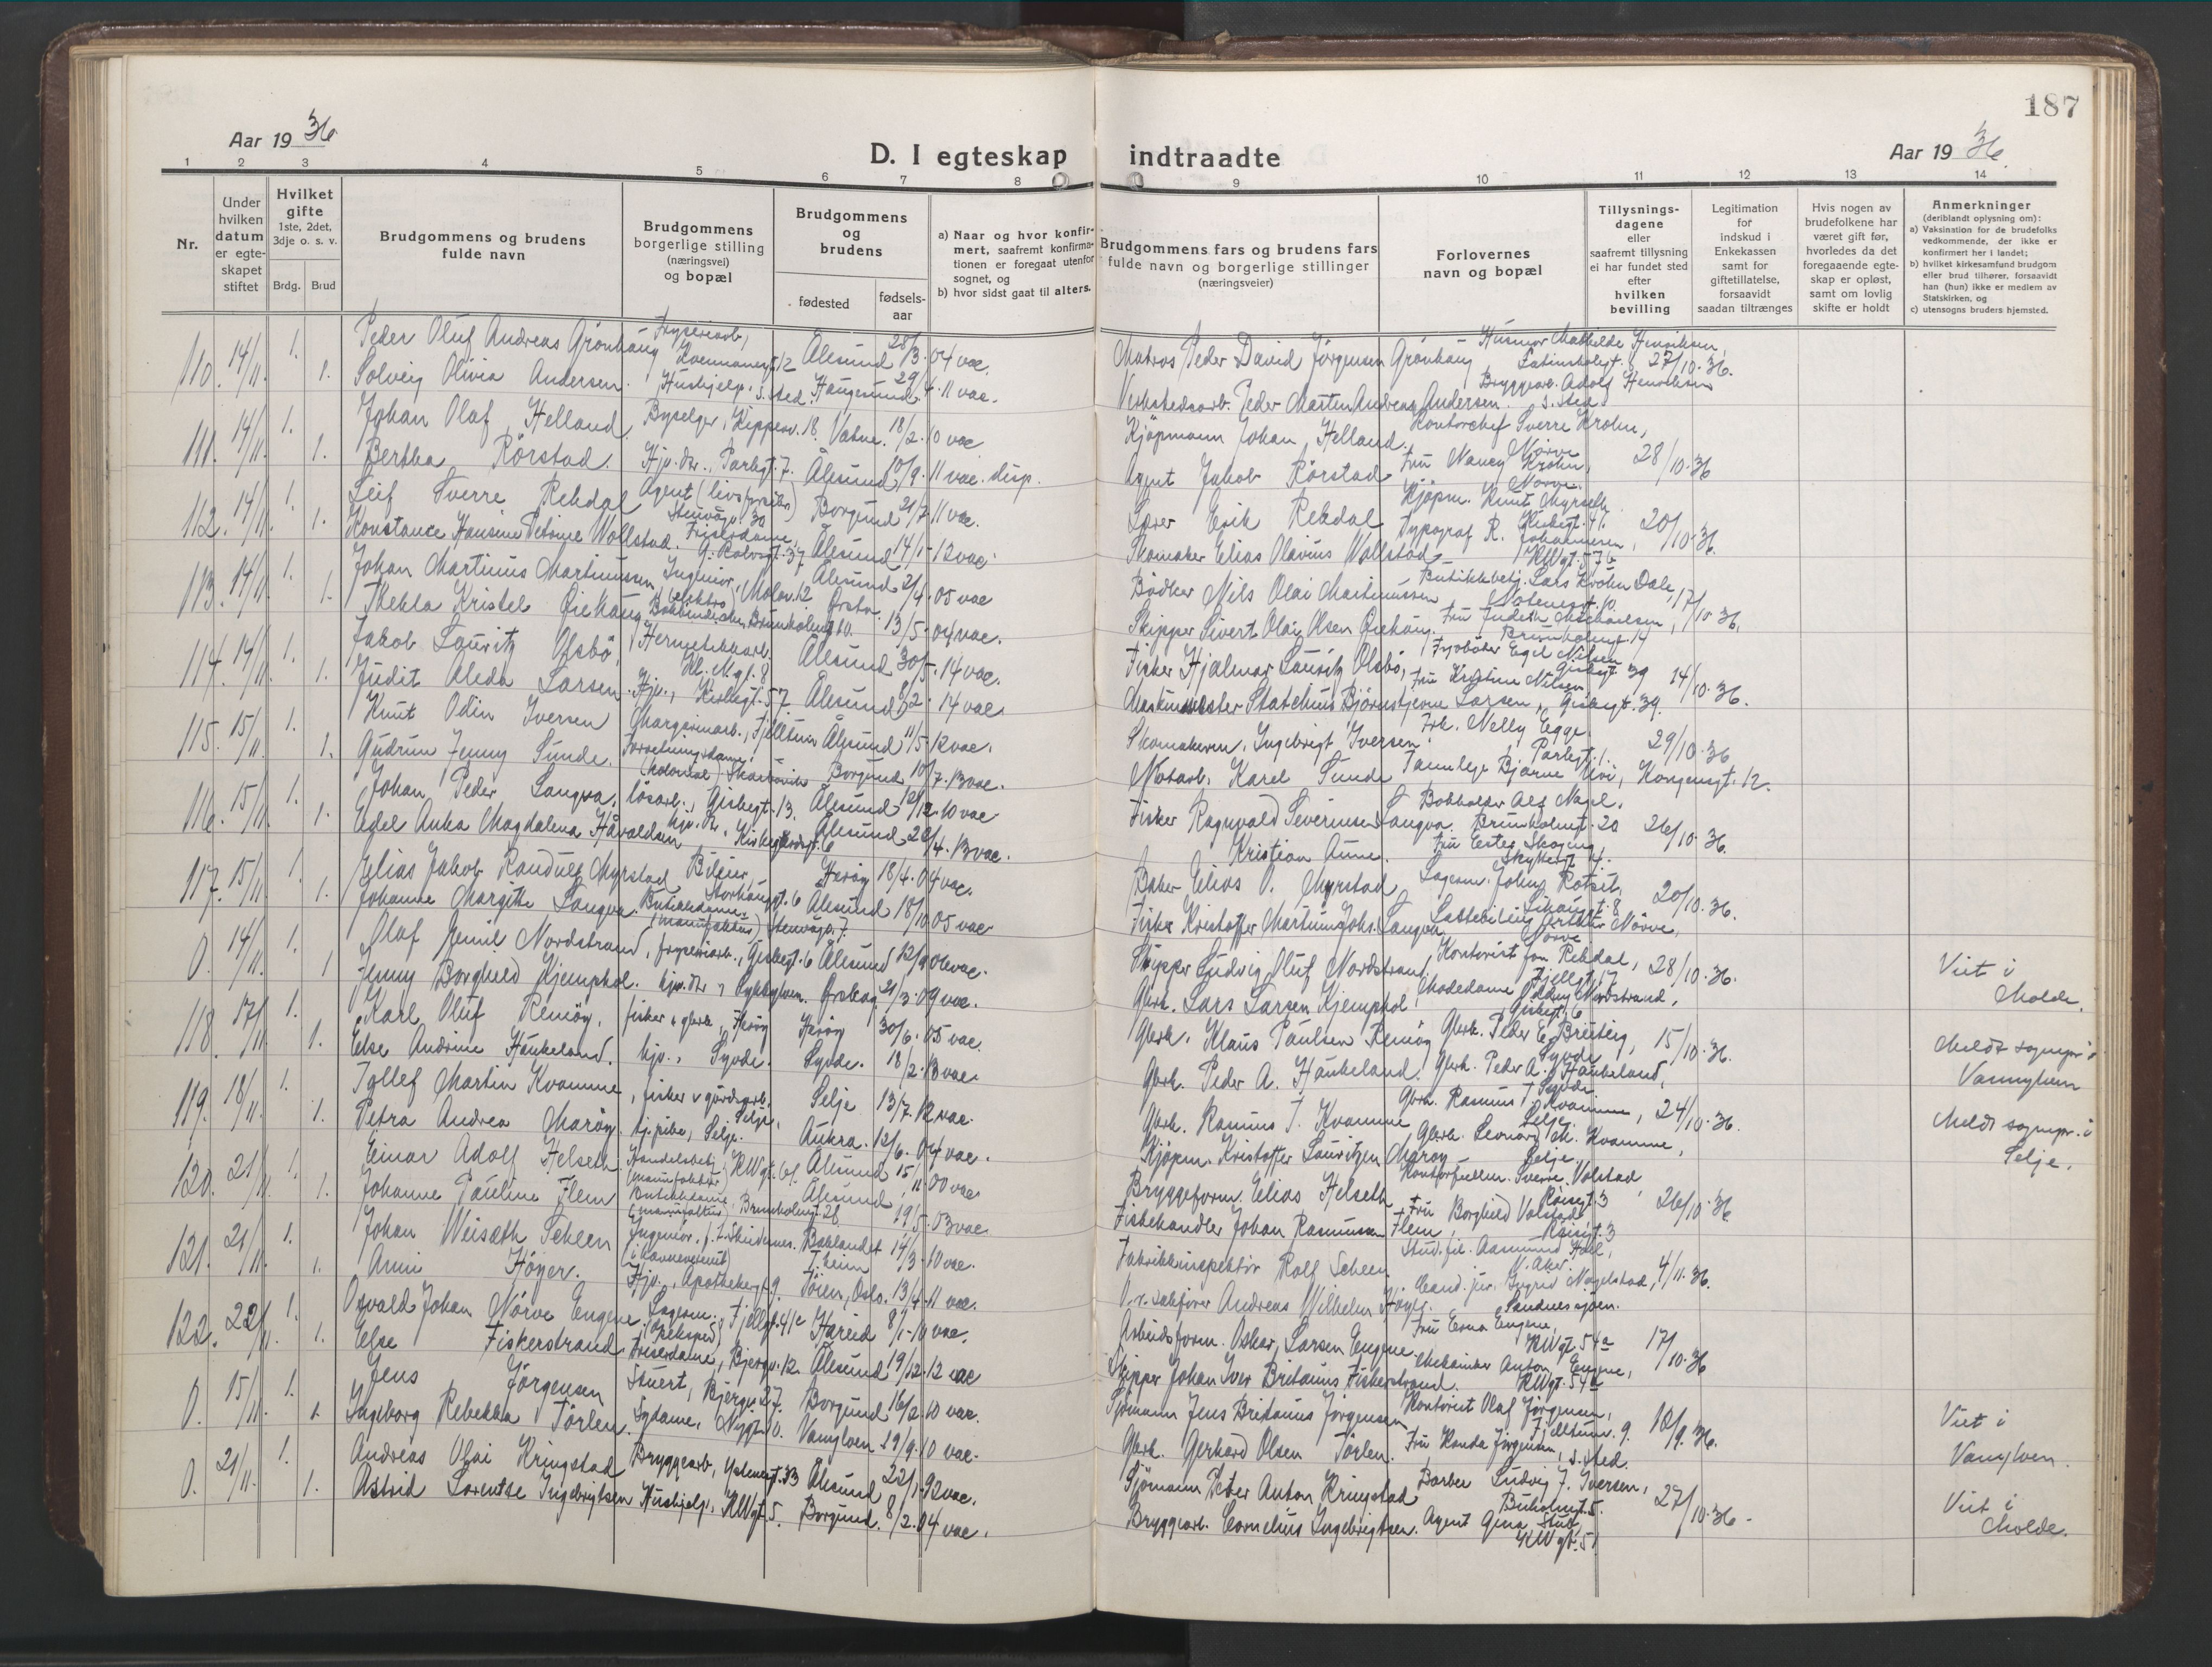 187
Aar 1936
D. I egteskap indtraadte
Aar 1936.
1 2 3 4 5 6 7 8 9 10 11 12 13 14
Nr.
Under hvilken datum er egteskapet stiftet
Hvilket gifte 1ste, 2det, 3dje o. s. v.
Brdg. Brud
Brudgommens og brudens fulde navn
Brudgommens borgerlige stilling (næringsvei) og bopæl
Brudgommens og brudens
fødested fødselsaar
a) Naar og hvor konfirmert, saafremt konfirmationen er foregaat utenfor sognet, og
b) hvor sidst gaat til alters.
Brudgommens fars og brudens fars fulde navn og borgerlige stillinger (næringsveier)
Forlovernes navn og bopæl
Tillysningsdagene eller saafremt tillysning ei har fundet sted efter hvilken bevilling
Legitimation for indskud i Enkekassen samt for giftetillatelse, forsaavidt saadan tiltrænges
Hvis nogen av brudefolkene har været gift før, hvorledes da det foregaaende egteskap er opløst, samt om lovlig skifte er holdt
Anmerkninger
(deriblandt oplysning om):
a) Vaksination for de brudefolks vedkommende, der ikke er konfirmert her i landet;
b) hvilket kirkesamfund brudgom eller brud tilhører, forsaavidt han (hun) ikke er medlem av Statskirken, og
c) utensogns bruders hjemsted.
110. 14/11. 1. Peder Oluf Andreas Grönhaug Fryseriarb., Ålesund 28/3.04 vac. Matros Peder David Jörgensen Grönhaug Husmor Mathilde Henriksen, 27/10.36.
1. Solveig Olivia Andersen. Hushjelp. s. sted. Haugesund 29/4.11 vac. Verkstedsarb. Peder Martin Andreas Andersen. Bryggearb. Adolf Henriksen s. sted
111. 14/11. 1. Johan Olaf Helland. Byselger, Kipperv. 18. Vatne. 18/2.10 vac Kjöpmann Johan Helland. Kontorchef Sverre Krohn, Nörve 28/10.36
1. Bertha Rörstad. Hjv. dtr., Parkgt. 7. Ålesund 10/9.11 vac. disp. Agent Jakob Rörstad Fru Nancy Krohn, Nörve.
112. 14/11. 1. Leif Sverre Rekdal Agent (livsforsikr) Stenvågv. 30 Borgund 21/7 11 vac. Lærer Erik Rekdal Kjöpm. Knut Myrseth Kirkegt. 41. 20/10.36.
1. Konstance Hansine Petrine Wollstad. Frisördame, G. Rolvsgt. 37 Ålesund 14/1-12 vac. Skomaker Elias Olavius Wollstad Typograf R. Johannesen, KWgt. 57 b
113. 14/11. 1. Johan Martinus Martinussen Ingeniör, (elektro) Molov. 12 Ålesund 21/4.05 vac Bödker Nils Olai Martinussen Butikkbetj. Lars Krohn Dale, Notenesgt. 10 17/10.36.
1. Thekla Kristel Giehaug Brunholmgt 10. Örsta 13/5-04 vac. Skipper Sivert Olai Olsen Giehaug. Fru Judith Michaelsen, Brunholmgt. 14
114. 14/11. 1. Jakob Lauritz Olsbö, Hermetikkarb. Kl. M.gt. 8 Ålesund 30/5-14 vac. Fisker Hjalmar Lauritz Olsbö, Egil Nilsen Giskegt. 39 14/10.36.
1. Judit Aleda Larsen. Hjv., Kirkegt. 57. Ålesund 8/2.14 vac Maskinmester Björnstjerne Larsen, Fru Kristine Nilsen, Giskegt. 39.
115. 15/11. 1. Knut Odin Iversen Margarinarb., Fjelltun Ålesund 11/5 12 vac. Skomakerm. Ingebrigt Iversen. Frk. Nelly Egge Parkgt. 1. 29/10.36
1. Gudrun Jenny Sunde. Forretningsdame, (kolonial) Skarbövik Borgund 10/7.13 vac. Notarb. Karel Sunde Tannlege Bjarne Urvi, Kongensgt. 12.
116. 15/11. 1. Johan Peder Langva. lösarb., Giskegt. 13. Ålesund 12/12.10 vac Fisker Ragnvald Severinsen Langva. Bokholder Alf Nagel. Brunholmgt. 20 26/10.36.
1. Edel Anka Magdalena Håvaldsen hjv. dtr., Kirkegårdsgt. 6 Ålesund 28/4.13 vac. Kristian Aune. Fru Ester Skogeng Skyttergt 4.
117. 15/11. 1. Elias Jakob Randulf Myrstad Bileier, Storhaugt. 6 Heröy 18/4.04 vac. Baker Elias O. Myrstad Lagerm. Johns Rotset, Lihaugt. 8 20/10.36.
1. Johanne Margithe Langva. Butikkdame. (manufaktur) Stenvågv. 7. Ålesund 18/10 05 vac Fisker Kristoffer Martinus Johs. Langva. Nörve, Nörve
0. 14/11. 1. Olaf Emil Nordstrand, fryseriarb., Giskegt. 6 Ålesund 12/9 06 vac. Skipper Ludvig Oluf Nordstrand, Kontorist Jon Rekdal, Fjellgt. 17 28/10.36. Viet i Molde.
1 Jenny Borghild Kjemphol. hjv. dtr., Sykkylven. Örskog 21/3.09 vac. Gbrk. Lars Larsen Kjemphol Modedame Oddny Nordstrand, Giskegt. 6
118. 17/11. 1. Karl Oluf Remöy, fisker & gbrk., Heröy Heröy 30/6.05 vac. Gbrk. Klaus Paulsen Remöy Gbrk. Peder E. Breiteig, Syvde 15/10.36. Meldt sognepr. i Vannylven
1. Else Andrine Haukeland. hjv., Syvde. Syvde. 18/2.13 vac. Gbrk. Peder A. Haukeland. Gbrk. Peder A. Haukeland, Syvde
119. 18/11. 1. Tollef Martin Kvamme, fisker & gårdsarb. Selje, Selje 13/7.12 vac. Gbrk. Rasmus T. Kvamme Gbrk. Rasmus T. Kvamme, Selje. 24/10.36. Meldt sognepr. i Selje.
1. Petra Andrea Maröy. hj. pike, Selje. Aukra. 12/6.04 vac. Kjöpm. Kristoffer Lauritzen Maröy Gbrk. Leonard M. Kvamme, Selje.
120. 21/11. 1. Einar Adolf Helseth Handelsbetj. (manufaktur) KWgt. Ålesund 15/11.00 vac. Bryggeform. Elias Helseth Kontorfullm. Sverre Valstad, Röisgt. 3 26/10.36.
1. Johanne Pauline Flem Butikkdame (manufaktur), Brunholmgt. 28 Ålesund 19/5.03 vac. Fiskehandler Johan Rasmussen Flem, Fru Borghild Valstad Röisgt. 3
121. 21/11. 1. Johan Weisæth Scheen Ingeniör, Baklandet Theim 14/3.10 vac. Fabrikkinspektör Rolf Scheen Stud. fil. Aasmund Hoel, V. Aker. 4/11.36.
1. Anni Höyer. Hjv., Apothekergt. 9. Töien, Oslo. 13/4-11 vac. O.r. sakförer Andreas Wilhelm Höyer. Cand. jur. Ingrid Nagelstad, Sandnessjöen.
122. 22/11. 1. Osvald Johan Nörve Engene. Lagerm. Fjellgt. 41c Hareid 8/1-10 vac. Arbeidsform. Oskar Larsen Engene. Fru Erna Engene, KWgt. 54a 17/10.36
1. Else Fiskerstrand. Frisördame, Bjergv. 12. Ålesund 19/12.12 vac Skipper Johan Iver Britanus Fiskerstrand. Mekaniker Anton Engene, KWgt. 54a
0. 15/11. 1. Jens Jörgensen Stuert, Bjergv. 27. Borgund 16/2.10 vac. Sjömann Jens Britanius Jörgensen Kontorist Olaf Jörgensen, Fjelltun. 9. 18/9.36. Viet i Vanylven.
1. Ingeborg Rebekka Törlen. Sydame, Nygt 10. Vanylven 19/9.10 vac. Gbrk. Gerhard Olsen Törlen. Fru Handa Jörgensen, s. sted.
0. 21/11. 1. Andreas Olai Kringstad Bryggearb., Notenesgt. 33 Ålesund 22/1-92 vac. Sjömann Peter Anton Kringstad Barber Ludvig J. Iversen, Buholmgt. 5. 27/10.36. Viet i Molde.
1. Astrid Lorentse Ingebrigtsen Hushjelp. KWgt. 5. Borgund. 8/2.04 vac. Bryggearb. Cornelius Ingebrigtsen. Agent Gina Stub, KWgt. 51